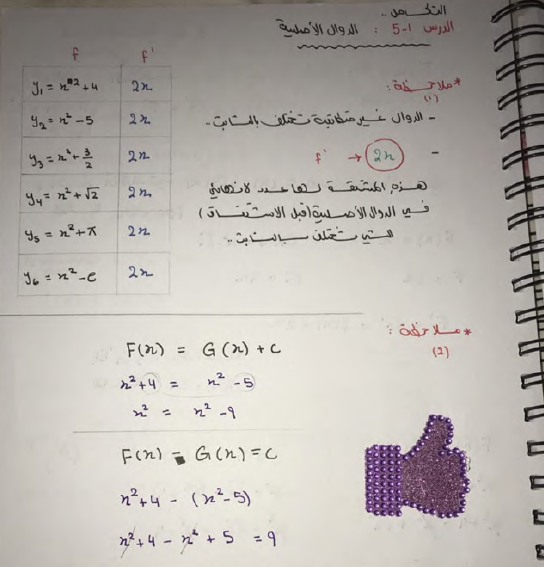 التكامل ..
الدرس 1-5 : الدوال الأصلية
f    f'
y₁ = x² + 4    2x
y₂ = x² - 5    2x
y₃ = x² + 3/2    2x
y₄ = x² + √2    2x
y₅ = x² + π    2x
y₆ = x² - e    2x
* ملاحظة :
(1)
- الدوال غير متطابقة تختلف بالثابت ..
- f' → 2x
هذه المشتقة لها عدد لانهائي
في الدوال الأصلية (قبل الاشتقاق)
التي تختلف بالثابت ..
* ملاحظة :
(2)
F(x) = G(x) + C
x² + 4 = x² - 5
x² = x² - 9
F(x) - G(x) = C
x² + 4 - (x² - 5)
x² + 4 - x² + 5 = 9